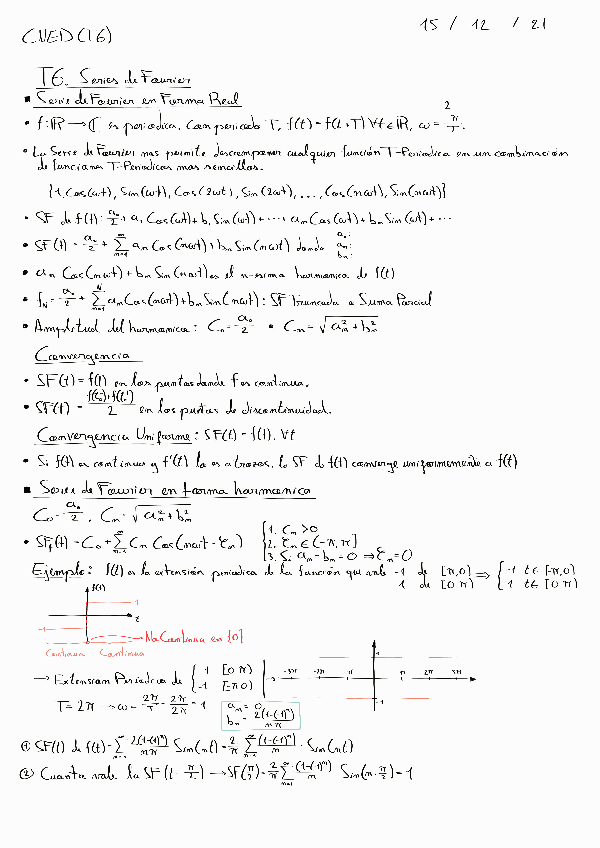 CUED(16)
15 / 12 / 21
T6. Series de Fourier
▪ Serie de Fourier en Forma Real
• f: ℝ → ℂ es periodica, con periodo T, f(t) = f(t+T) ∀t ∈ ℝ, ω = 2π/T.
• La Serie de Fourier nos permite descomponer cualquier función T-Periodica en un combinación
de funciones T-Periodicas mas sencillas.
{1, Cos(ωt), Sin(ωt), Cos(2ωt), Sin(2ωt), ..., Cos(nωt), Sin(nωt)}
• SF de f(t): a₀/2 + a₁ Cos(ωt) + b₁ Sin(ωt) + ... aₙ Cos(ωt) + bₙ Sin(ωt) + ...
• SF(t) = a₀/2 + ∑_{n=1}^{∞} aₙ Cos(nωt) + bₙ Sin(nωt) donde a₀: aₙ: bₙ:
• aₙ Cos(nωt) + bₙ Sin(nωt) es el n-esimo harmonico de f(t)
• f_N = a₀/2 + ∑_{n=1}^{N} aₙ Cos(nωt) + bₙ Sin(nωt): SF truncada o Suma Parcial
• Amplitud del harmonico: C₀ = a₀/2 • Cₙ = √(aₙ² + bₙ²)
Convergencia
• SF(t) = f(t) en los puntos donde f es continua.
• SF(t) = f(t₀⁻)+f(t₀⁺)/2 en los puntos de discontinuidad.
Convergencia Uniforme: SF(t) = f(t), ∀t
• Si f(t) es continua y f'(t) lo es a trozos, la SF de f(t) converge uniformemente a f(t)
▪ Serie de Fourier en forma harmonica
C₀ = a₀/2, Cₙ = √(aₙ² + bₙ²)
• SF_f(t) = C₀ + ∑_{n=1}^{∞} Cₙ Cos(nωt - φₙ) { 1. Cₙ > 0
2. φₙ ∈ (-π, π]
3. Si aₙ = bₙ = 0 ⇒ φₙ = 0
Ejemplo: f(t) es la extensión periodica de la función que vale -1 de [-π,0) ⇒ { -1 t ∈ [-π,0)
1 de [0,π) 1 t ∈ [0,π)
f(t)
1
t
-1
→ No Continua en {0}
Continua Continua
→ Extension Periodica de { 1 [0,π)
-1 [-π,0)
-3π -2π -π π 2π 3π
1
-1
T = 2π → ω = 2π/T = 2π/2π = 1
aₙ = 0
bₙ = 2(1-(-1)ⁿ)/nπ
① SF(t) de f(t) = ∑_{n=1}^{∞} 2(1-(-1)ⁿ)/nπ Sin(nt) = 2/π ∑_{n=1}^{∞} (1-(-1)ⁿ)/n · Sin(nt)
② Cuanto vale la SF(t = π/2) → SF(π/2) = 2/π ∑_{n=1}^{∞} (1-(-1)ⁿ)/n Sin(n·π/2) = 1